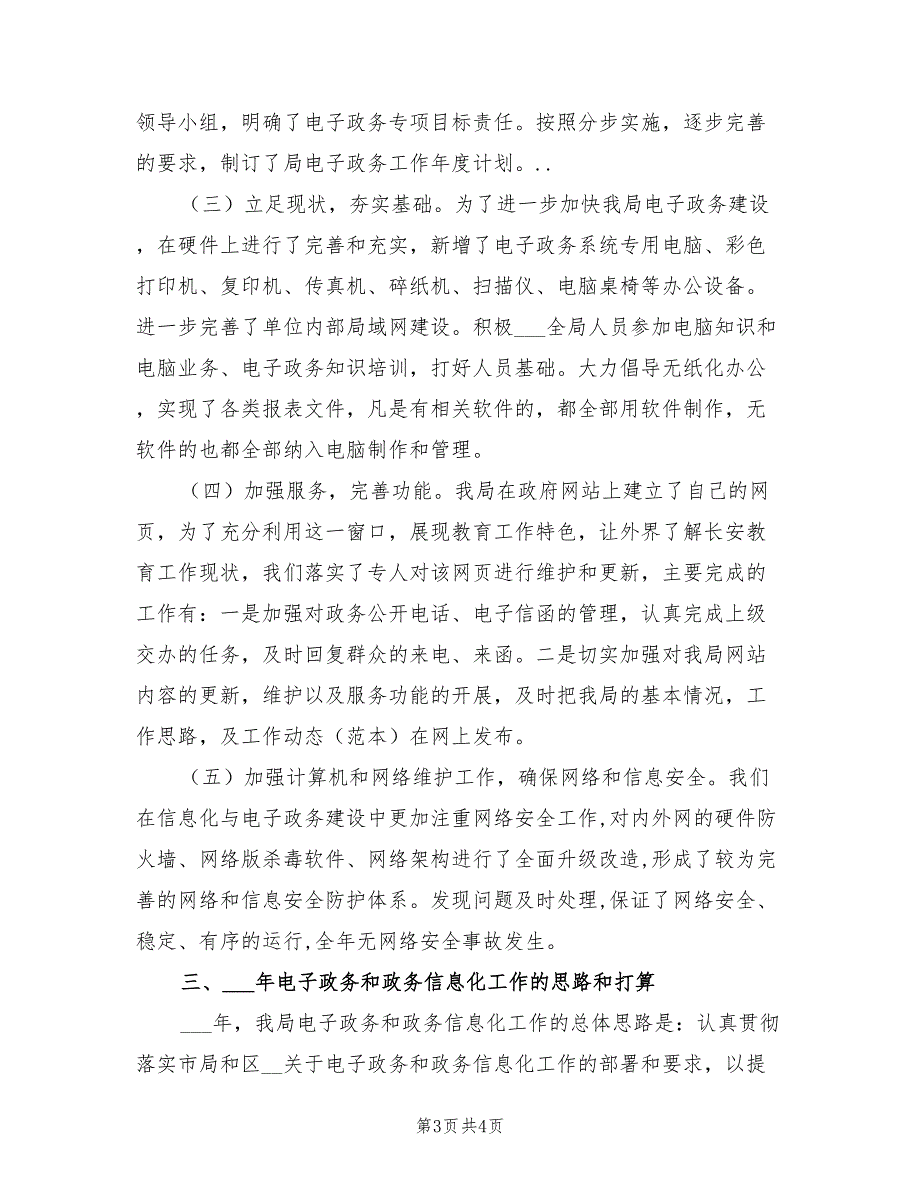 领导小组，明确了电子政务专项目标责任。按照分步实施，逐步完善
的要求，制订了局电子政务工作年度计划。..
（三）立足现状，夯实基础。为了进一步加快我局电子政务建设
，在硬件上进行了完善和充实，新增了电子政务系统专用电脑、彩色
打印机、复印机、传真机、碎纸机、扫描仪、电脑桌椅等办公设备。
进一步完善了单位内部局域网建设。积极___全局人员参加电脑知识和
电脑业务、电子政务知识培训，打好人员基础。大力倡导无纸化办公
，实现了各类报表文件，凡是有相关软件的，都全部用软件制作，无
软件的也都全部纳入电脑制作和管理。
（四）加强服务，完善功能。我局在政府网站上建立了自己的网
页，为了充分利用这一窗口，展现教育工作特色，让外界了解长安教
育工作现状，我们落实了专人对该网页进行维护和更新，主要完成的
工作有：一是加强对政务公开电话、电子信函的管理，认真完成上级
交办的任务，及时回复群众的来电、来函。二是切实加强对我局网站
内容的更新，维护以及服务功能的开展，及时把我局的基本情况，工
作思路，及工作动态（范本）在网上发布。
（五）加强计算机和网络维护工作，确保网络和信息安全。我们
在信息化与电子政务建设中更加注重网络安全工作,对内外网的硬件防
火墙、网络版杀毒软件、网络架构进行了全面升级改造,形成了较为完
善的网络和信息安全防护体系。发现问题及时处理,保证了网络安全、
稳定、有序的运行,全年无网络安全事故发生。
三、___年电子政务和政务信息化工作的思路和打算
___年，我局电子政务和政务信息化工作的总体思路是：认真贯彻
落实市局和区__关于电子政务和政务信息化工作的部署和要求，以提
第3页共4页